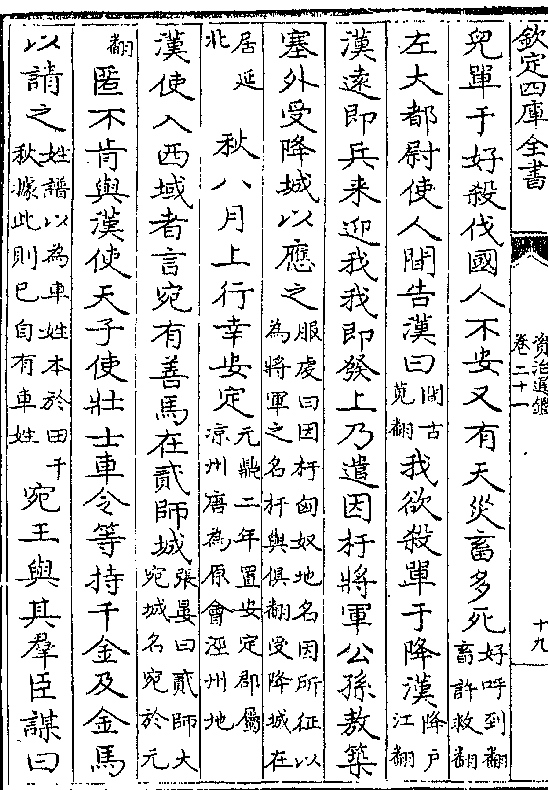 欽定四庫全書
資治通鑑
卷二十一
十九
兒單于好殺伐國人不安又有天災畜多死好呼到翻畜許救翻
左大都尉使人間告漢曰間古莧翻我欲殺單于降漢降戶江翻
漢遠即兵来迎我我即發上乃遣因杅將軍公孫敖築
塞外受降城以應之服虔曰因杅匈奴地名因所征以為將軍之名杅與俱翻受降城在
居延北 秋八月上行幸安定元鼎二年置安定郡屬涼州唐為原會涇州地
漢使入西域者言宛有善馬在貳師城張晏曰貳師大宛城名宛於元
翻匿不肯與漢使天子使壯士車令等持千金及金馬
以請之姓譜以為車姓本於田千秋據此則已自有車姓宛王與其羣臣謀曰